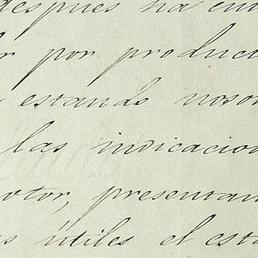 despues ha
por product
estando
las indicacion
presentan
útiles el est